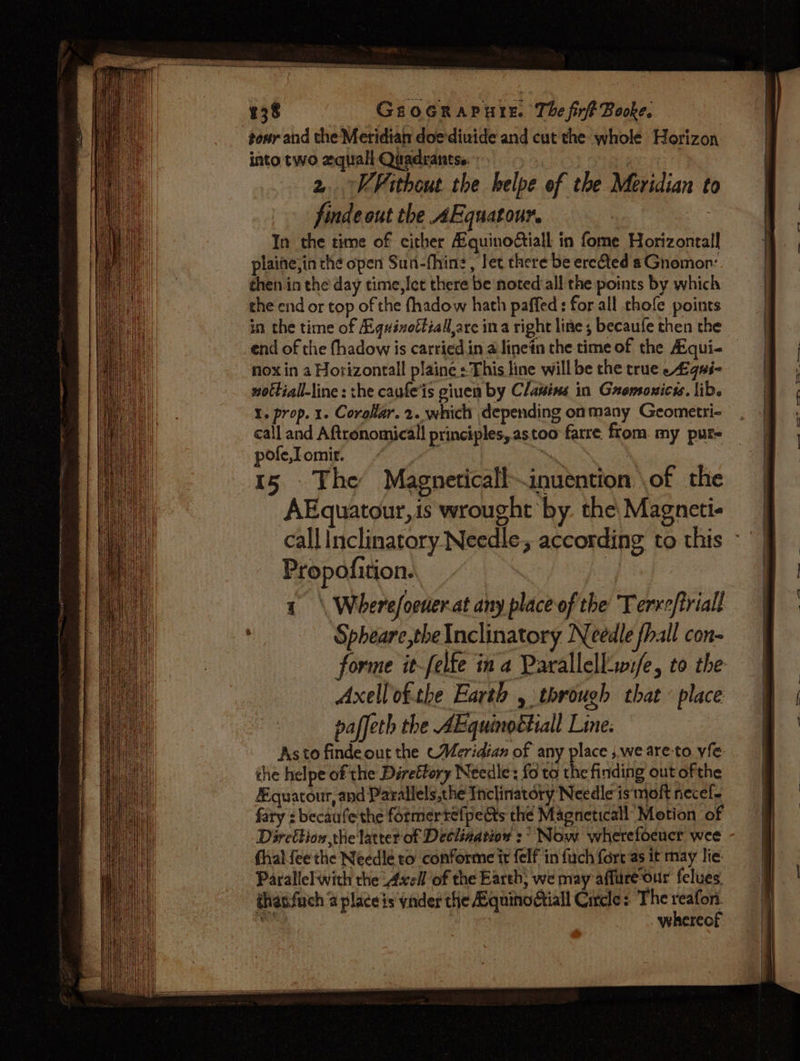 138 GEOGRAPHIE. The firſt Booke.
tour and the Meridian doe diuide and cut the whole Horizon
into two æquall Quadrants.
2. VVithout the helpe of the Meridian to
finde out the AEquatour.
In the time of either Æquinoctiall in ſome Horizontall
plaine, in the open Sun-ſhine, let there be erected a Gnomon:
then in the day time, let there be noted all the points by which
the end or top of the ſhadow hath paſſed: for all thoſe points
in the time of Æquinoctiall, are in a right line; becauſe then the
end of the ſhadow is carried in a line in the time of the Æqui-
nox in a Horizontall plaine: This line will be the true Æqui-
noctiall-line: the cauſe is giuen by Clauius in Gnomonicis. lib.
1. prop. 1. Corollar. 2. which depending on many Geometri-
call and Aſtronomicall principles, as too farre from my pur-
poſe, I omit.
15 The Magneticall inuention of the
AEquatour, is wrought by the Magneti-
call Inclinatory Needle, according to this
Propoſition.
1 Whereſoeuer at any place of the Terreſtriall
Spheare, the Inclinatory Needle ſhall con-
forme it ſelfe in a Parallell-wiſe, to the
Axell of the Earth, through that place
paſſeth the AEquinoctiall Line.
As to finde out the Meridian of any place, we are to vſe
the helpe of the Directory Needle: ſo to the finding out of the
Æquatour, and Parallels, the Inclinatory Needle is moſt neceſ-
ſary: becauſe the former reſpects the Magneticall Motion of
Direction, the latter of Declination: Now whereſoeuer wee
ſhal ſee the Needle to conforme it ſelf in ſuch ſort as it may lie
Parallel with the Axell of the Earth, we may aſſure our ſelues
that ſuch a place is vnder the Æquinoctiall Circle: The reaſon
whereof